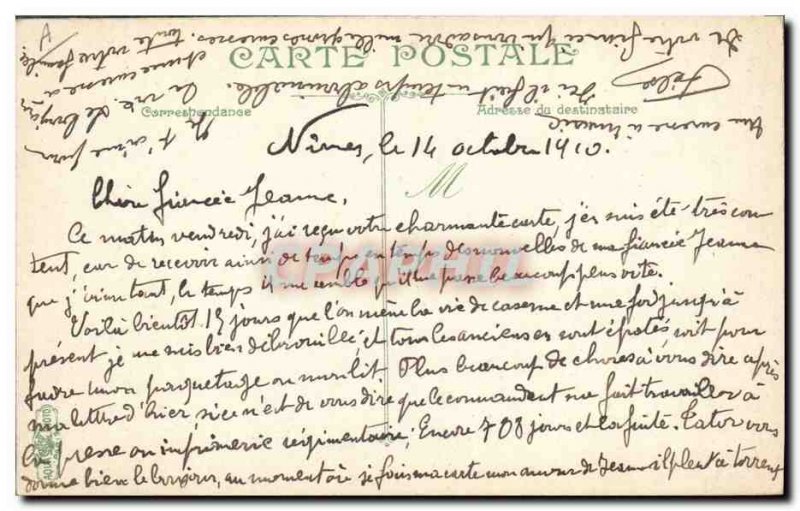 CARTE POSTALE
Correspondance
Adresse du destinataire
Nîmes, le 14 octobre 1910.
M
Chère fiancée Jeanne,
Ce matin vendredi, j'ai reçu votre charmante carte, j'en suis été très con
tent, car de recevoir ainsi de temps en temps des nouvelles de ma fiancée Jeanne
que j'aime tant, le temps il me semble qu'il me passe beaucoup plus vite.
Voilà bientôt 15 jours que l'on mène la vie de caserne et ma foi jusqu'à
présent je me suis bien débrouillé et tous les anciens en sont épatés soit pour
faire mon paquetage ou mon lit. Plus beaucoup de choses à vous dire après
ma lettre d'hier si ce n'est de vous dire que le commandant me fait travailler à
la presse ou imprimerie régimentaire; Encore 708 jours et la fuite. Cator vous
donne bien le bonjour, au moment où je fais ma carte mon amour de Jeanne il pleut à torrent
Ici il fait un temps abominable.
De votre fiancé qui vous adresse mille grosses caresses.
toute votre famille